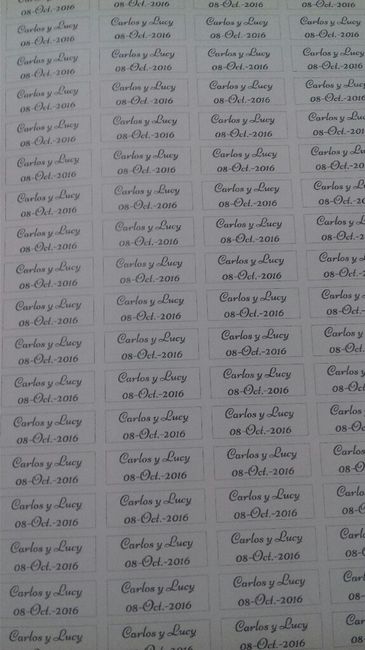 08-Oct.-2016 08-Oct.-2016 08-Oct.-2016 08-Oct.-2016
Carlos y Lucy Carlos y Lucy Carlos y Lucy Carlos y Lucy
08-Oct.-2016 08-Oct.-2016 08-Oct.-2016 08-Oct.-2016
Carlos y Lucy Carlos y Lucy Carlos y Lucy Carlos y Lucy
08-Oct.-2016 08-Oct.-2016 08-Oct.-2016 08-Oct.-2016
Carlos y Lucy Carlos y Lucy Carlos y Lucy Carlos y Lucy
08-Oct.-2016 08-Oct.-2016 08-Oct.-2016 08-Oct.-201
Carlos y Lucy Carlos y Lucy Carlos y Lucy Carlos y Luc
08-Oct.-2016 08-Oct.-2016 08-Oct.-2016 08-Oct.-201
Carlos y Lucy Carlos y Lucy Carlos y Lucy Carlos y Lu
08-Oct.-2016 08-Oct.-2016 08-Oct.-2016 08-Oct.-20
Carlos y Lucy Carlos y Lucy Carlos y Lucy Carlos y L
08-Oct.-2016 08-Oct.-2016 08-Oct.-2016 08-Oct.-20
Carlos y Lucy Carlos y Lucy Carlos y Lucy Carlos y L
08-Oct.-2016 08-Oct.-2016 08-Oct.-2016 08-Oct.-2
Carlos y Lucy Carlos y Lucy Carlos y Lucy Carlos y
08-Oct.-2016 08-Oct.-2016 08-Oct.-2016 08-Oct.-2
Carlos y Lucy Carlos y Lucy Carlos y Lucy Carlos y
08-Oct.-2016 08-Oct.-2016 08-Oct.-2016 08-Oct.-
Carlos y Lucy Carlos y Lucy Carlos y Lucy Carlos y
08-Oct.-2016 08-Oct.-2016 08-Oct.-2016 08-Oct.
Carlos y Lucy Carlos y Lucy Carlos y Lucy Carlos y
08-Oct.-2016 08-Oct.-2016 08-Oct.-2016 08-Oct
Carlos y Lucy Carlos y Lucy Carlos y Lucy Carlos
08-Oct.-2016 08-Oct.-2016 08-Oct.-2016 08-Oct
Carlos y Lucy Carlos y Lucy Carlos y Lucy Carlos
08-Oct.-2016 08-Oct.-2016 08-Oct.-2016 08-O
Carlos y Lucy Carlos y Lucy Carlos y Lucy Carlo
08-Oct.-2016 08-Oct.-2016 08-Oct.-2016 08-O
Carlos y Lucy Carlos y Lucy Carlos y Lucy Carl
08-Oct.-2016 08-Oct.-2016 08-Oct.-2016 08-
Carlos y Lucy Carlos y Lucy Carlos y Lucy Carl
08-Oct.-2016 08-Oct.-2016 08-Oct.-2016 08-
Carlos y Lucy Carlos y Lucy Carlos y Lucy Car
08-Oct.-2016 08-Oct.-2016